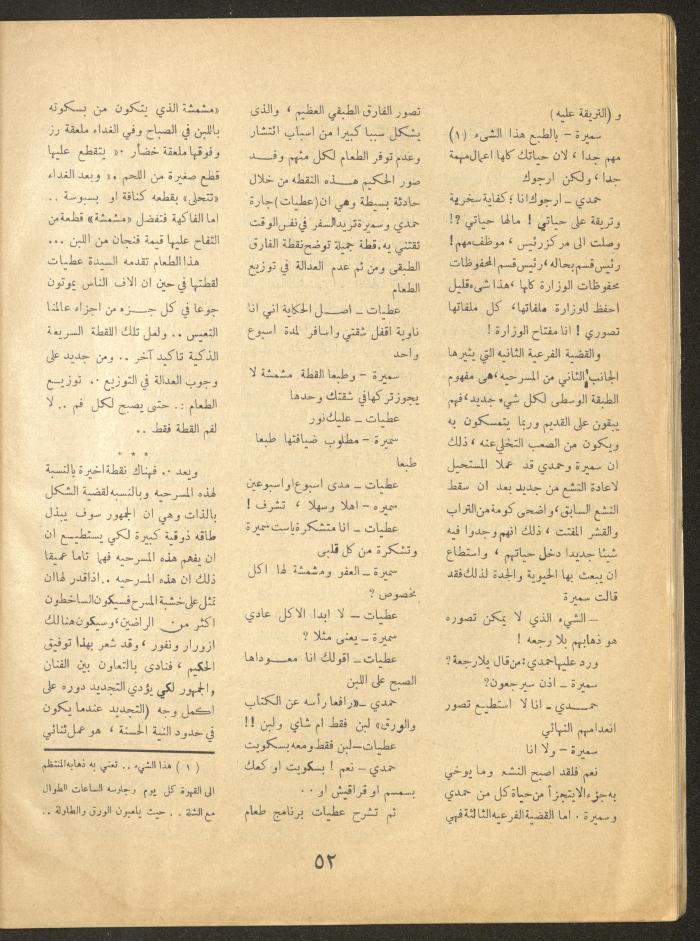 و (التريقة عليه)
سميرة – بالطبع هذا الشيء (١)
مهم جدا ، لان حياتك كلها اعمال مهمة
جدا ، ولكن ارجوك
حمدي – ارجوك انا ؛ كفاية سخرية
وتريقة على حياتي ! مالها حياتي ؟!
وصلت الى مركز رئيس ، موظف مهم !
رئيس قسم بحاله، رئيس قسم المحفوظات
محفوظات الوزارة كلها ، هذا شىء قليل
احفظ للوزارة ملفاتها، كل ملفاتها
تصوري ! انا مفتاح الوزارة !
والقضية الفرعية الثانيه التي يثيرها
الجانب الثاني من المسرحيه ، هى مفهوم
الطبقة الوسطى لكل شيء جديد، فهم
يبقون على القديم وربما يتمسكون به
ويكون من الصعب التخلي عنه ، ذلك
ان سميرة وحمدي قد عملا المستحيل
لاعادة النشع من جديد بعد ان سقط
النشع السابق، واضحى كومة من التراب
والقشر المفتت ، ذلك انهم وجدوا فيه
شيئا جديدا دخل حياتهم ، واستطاع
ان يبعث بها الحيوية والجدة لذلك فقد
قالت سميرة
– الشيء الذي لا يمكن تصوره
هو ذهابهم بلا رجعه !
ورد عليها حمدي: من قال بلا رجعة؟
سميرة – اذن سيرجعون؟
حمــدي – انا لا استطيع تصور
انعدامهم النهائي
سميرة – ولا انا
نعم فلقد اصبح النشع وما يوحي
به جزء لا يتجزأ من حياة كل من حمدي
وسميرة . اما القضية الفرعيه الثالثة فهي
تصور الفارق الطبقي العظيم ، والذى
يشكل سببا كبيرا من اسباب انتشار
وعدم توفر الطعام لكل منهم وقــد
صور الحكيم هــذه النقطه من خلال
حادثة بسيطة وهي ان (عطيات) جارة
حمدي وسميرة تريد السفر في نفس الوقت
تقتني به. قطة جميلة توضح نقطة الفارق
الطبقى ومن ثم عدم العدالة في توزيع
الطعام
عطيات – اصــل الحكاية اني انا
ناوية اقفل شقتي واسافر لمدة اسبوع
واحد
سميرة – وطبعا القطة مشمشة لا
يجوز تركها في شقتك وحدها
عطيات – عليك نور
سميرة – مطلوب ضيافتها طبعا
طبعا
عطيات – مدى اسبوع او اسبوعين
سميره – اهلا وسهلا ، تشرف !
عطيات – انا متشكرة ياست سميرة
وتشكرة من كل قلبى
سميرة – العفو ومشمشة لها اكل
بخصوص ؟
عطيات – لا ابدا الاكل عادي
سميرة – يعنى مثلا ؟
عطيات – اقولك انا معــوداها
الصبح على اللبن
حمدي – «رافعا رأسه عن الكتاب
والورق» لبن فقط ام شاي ولبن !!
عطيات – لبن فقط ومعه بسكويت
حمدي – نعم ! بسكويت او كعك
بسمسم او قراقيش او . .
ثم تشرح عطيات برنامج طعام
«مشمشة الذي يتكون من بسكوته
باللبن في الصباح وفي الغداء ملعقة رز
وفوقها ملعقة خضار .« يتقطع عليها
قطع صغيرة من اللحم .« وبعد الغداء
«تتحلى» بقطعه كنافة او بسبوسة ..
اما الفاكهة فتفضل «مشمشة» قطعة من
التفاح عليها قيمة فنجان من اللبن ...
هذا الطعام تقدمه السيدة عطيات
لقطتها في حين ان الاف الناس يموتون
جوعا في كل جــزء من اجزاء عالمنا
التعيس .. ولعل تلك اللقطة السريعة
الذكية تاكيد آخر .. ومن جديد على
وجوب العدالة في التوزيع .. توزيــع
الطعام .. حتى يصبح لكل فم .. لا
لفم القطة فقط ..
* * *
وبعد .. فهناك نقطة اخيرة بالنسبة
لهذه المسرحيه وبالنسبه لقضية الشكل
بالذات وهي ان الجمهور سوف يبذل
طاقه ذوقية كبيرة لكي يستطيــع ان
ان يفهم هذه المسرحيه فهما تاما عميقا
ذلك ان هذه المسرحيه .. اذا قدر لها ان
تمثل على خشبة المسرح فسيكون الساخطون
اكثر من الراضين، وسيكون هنالك
ازورار ونفور ، وقد شعر بهذا توفيق
الحكيم ، فنادى بالتعاون بين الفنان
والجمهور لكي يؤدي التجديد دوره على
اكمل وجه (التجديد عندما يكون
في حدود النية الحسنة ، هو عمل ثنائي
( ١ ) هذا الشيء .. تعني به ذهابه المنتظم
الى القهوة كل يوم وجلوسه الساعات الطوال
مع الشلة . . حيث يلعبون الورق والطاولة ..
٥٢